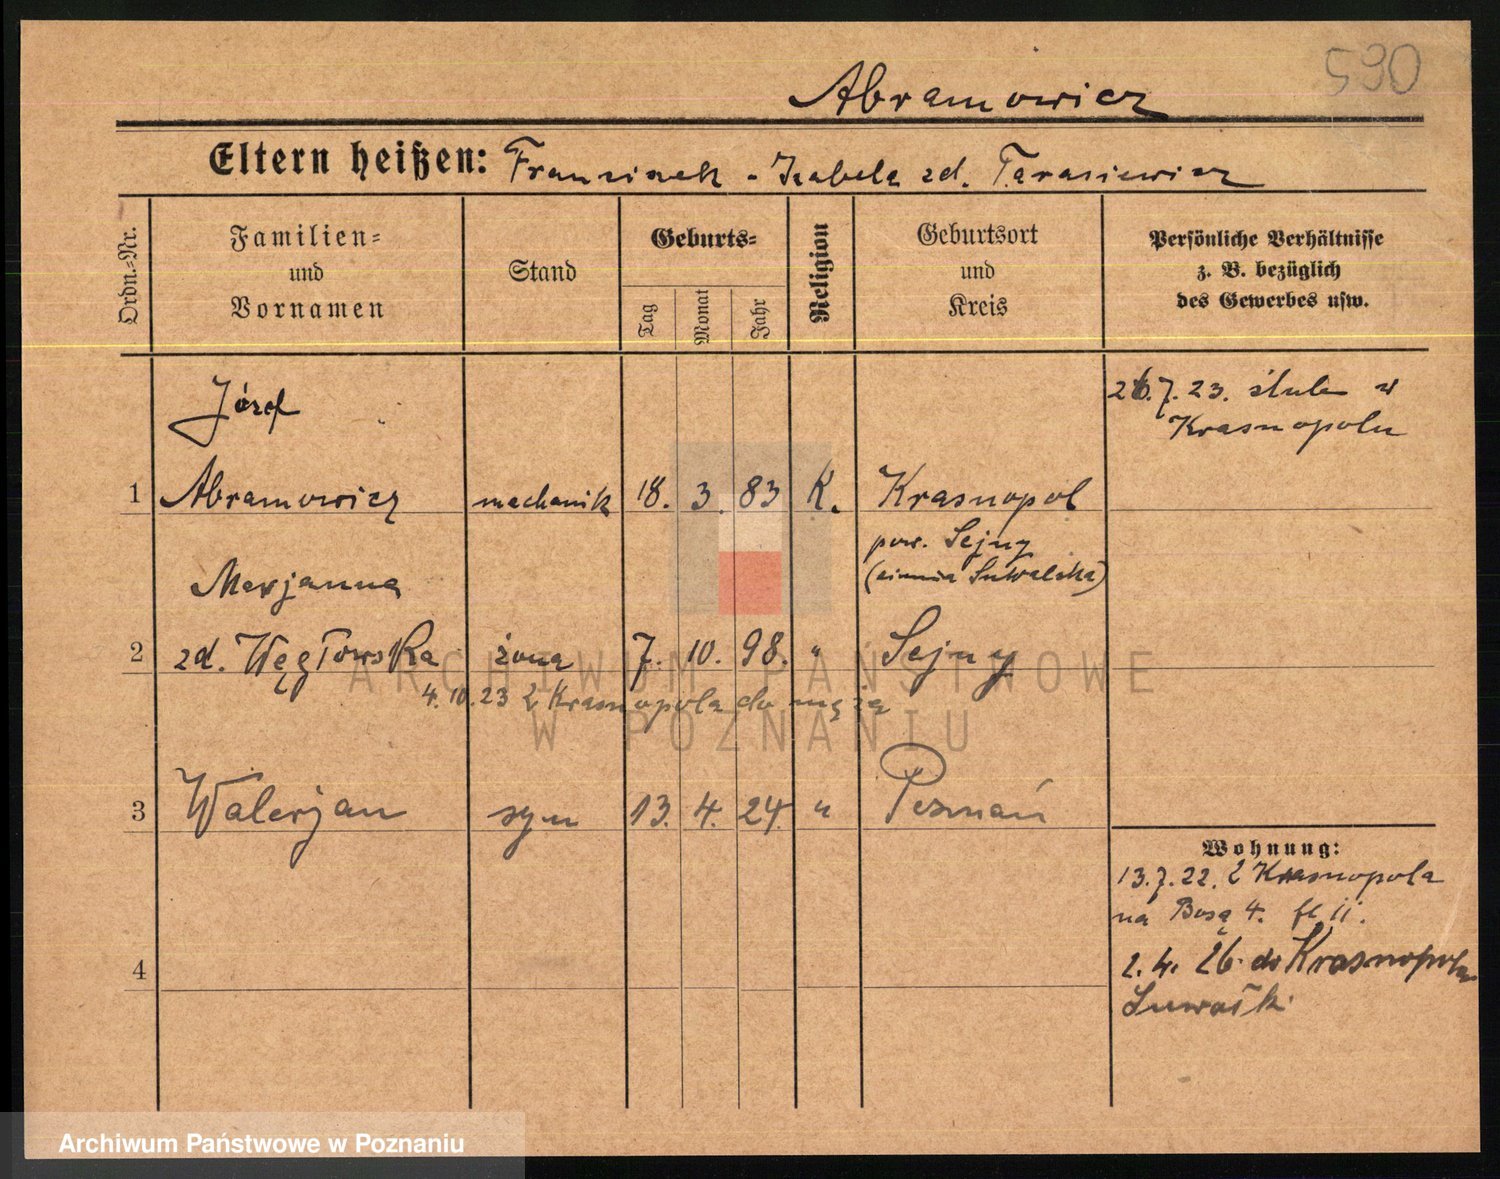 590
Abramowicz
Eltern heißen: Franciszek - Izabela zd. Tarasiewicz
Ordn.-Nr.
Familien-
und
Vornamen
Stand
Geburts-
Tag
Monat
Jahr
Religion
Geburtsort
und
Kreis
Persönliche Verhältnisse
z. B. bezüglich
des Gewerbes usw.
26.7.23. ślub w
Krasnopolu
Józef
1 Abramowicz mechanik 18. 3. 83 K. Krasnopol
pow. Sejny
(ziemia Suwalska)
Marjanna
2 zd. Węgłowska żona 7. 10. 98. " Sejny
4.10.23 z Krasnopola do męża
3 Walerjan syn 13. 4. 24. " Poznań
Wohnung:
13.7.22. z Krasnopola
na Bosą 4. II.
4
2.4. 26. do Krasnopola
Suwałki
ARCHIWUM PAŃSTWOWE
W POZNANIU
Archiwum Państwowe w Poznaniu